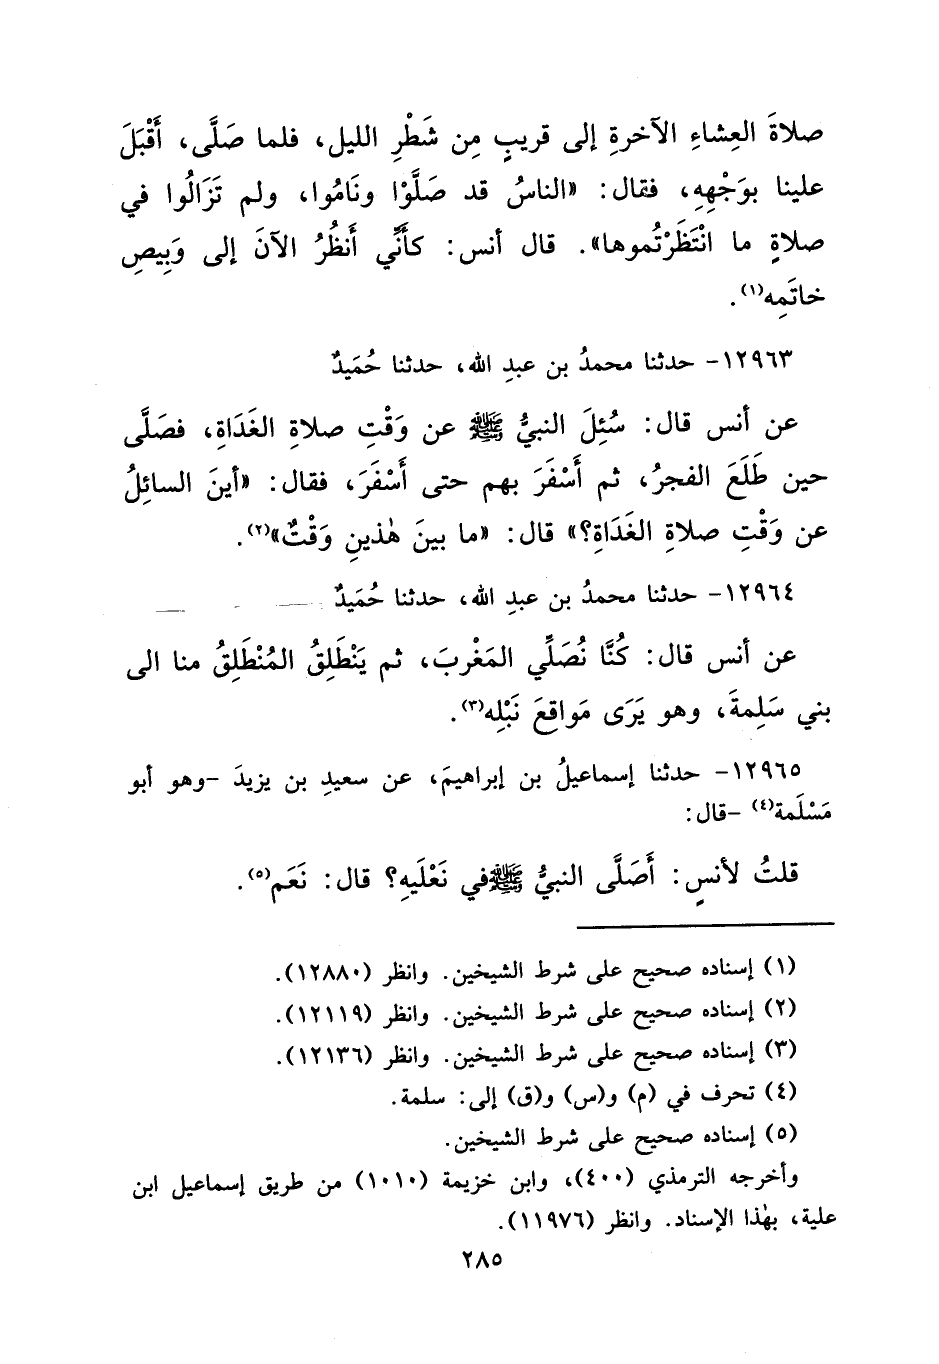 صلاةَ العِشاءِ الآخرةِ إلى قريبٍ مِن شَطْرِ الليل، فلما صَلَّى، أَقْبَلَ
علينا بوَجْهِهِ، فقال: «الناسُ قد صَلَّوْا ونَامُوا، ولم تَزَالُوا في
صلاةٍ ما انْتَظَرْتُموها». قال أنس: كأَنِّي أَنظُرُ الآنَ إلى وَبِيصِ
خاتَمِه(١).
١٢٩٦٣- حدثنا محمدُ بن عبدِ الله، حدثنا حُمَيدٌ
عن أنس قال: سُئِلَ النبيُّ ﷺ عن وَقْتِ صلاةِ الغَدَاةِ، فصَلَّى
حين طَلَعَ الفجرُ، ثم أَسْفَرَ بهم حتى أَسْفَرَ، فقال: «أينَ السائلُ
عن وَقْتِ صلاةِ الغَدَاةِ؟» قال: «ما بينَ هٰذينِ وَقْتٌ»(٢).
١٢٩٦٤- حدثنا محمدُ بن عبدِ الله، حدثنا حُمَيدٌ
عن أنس قال: كُنَّا نُصَلِّي المَغْربَ، ثم يَنْطَلِقُ المُنْطَلِقُ منا الى
بني سَلِمةَ، وهو يَرَى مَواقِعَ نَبْلِه(٣).
١٢٩٦٥- حدثنا إسماعيلُ بن إبراهيمَ، عن سعيدِ بن يزيدَ -وهو أبو
مَسْلَمة(٤) -قال:
قلتُ لأنسٍ: أَصَلَّى النبيُّ ﷺ في نَعْلَيهِ؟ قال: نَعَم(٥).
(١) إسناده صحيح على شرط الشيخين. وانظر (١٢٨٨٠).
(٢) إسناده صحيح على شرط الشيخين. وانظر (١٢١١٩).
(٣) إسناده صحيح على شرط الشيخين. وانظر (١٢١٣٦).
(٤) تحرف في (م) و(س) و(ق) إلى: سلمة.
(٥) إسناده صحيح على شرط الشيخين.
وأخرجه الترمذي (٤٠٠)، وابن خزيمة (١٠١٠) من طريق إسماعيل ابن
علية، بهٰذا الإسناد. وانظر (١١٩٧٦).
٢٨٥